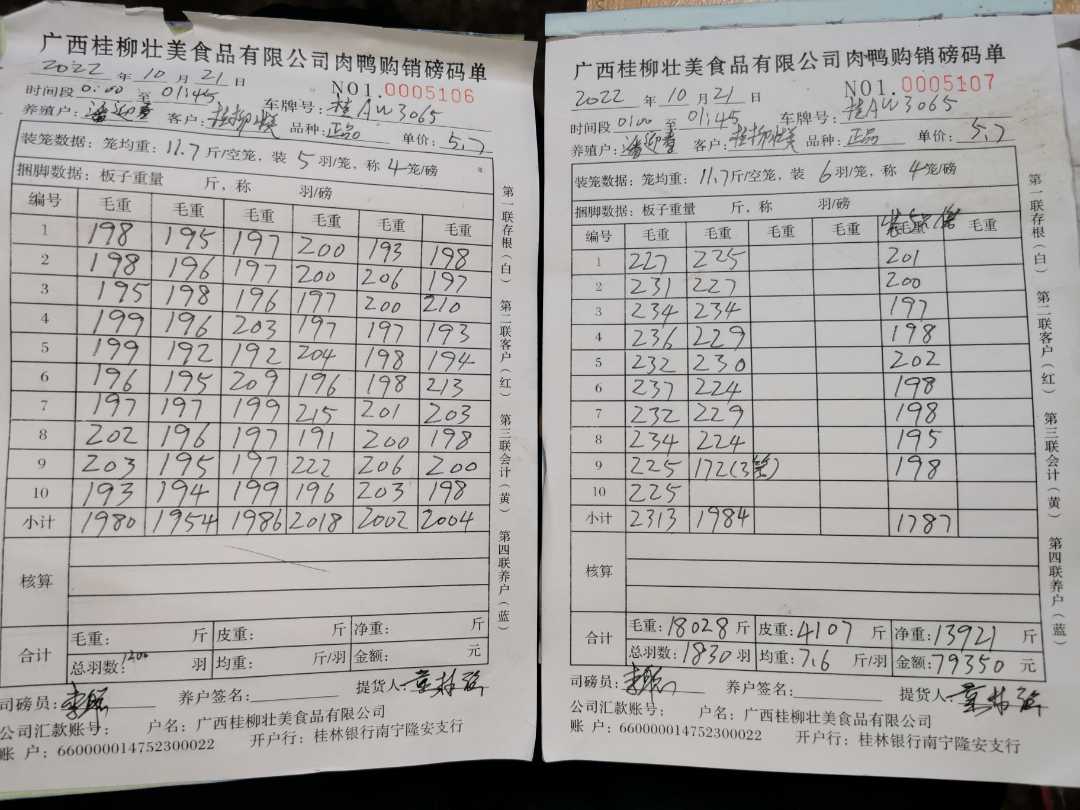 广西桂柳壮美食品有限公司肉鸭购销磅码单
2022 年 10 月 21 日 NO1.0005106
时间段 0:00 至 01:45 车牌号: 桂AW3065
养殖户: 客户: 桂柳壮美 品种: 正品 单价: 5.7
装笼数据: 笼均重: 11.7 斤/空笼, 装 5 羽/笼, 称 4 笼/磅
捆脚数据: 板子重量 斤, 称 羽/磅
编号 毛重 毛重 毛重 毛重 毛重 毛重
1 198 195 197 200 193 198
2 198 196 197 200 206 197
3 195 198 196 197 200 210
4 199 196 203 197 197 193
5 199 192 192 204 198 194
6 196 195 209 196 198 213
7 197 197 199 215 201 203
8 202 196 197 191 200 198
9 203 195 197 222 206 200
10 193 194 199 196 203 198
小计 1980 1954 1986 2018 2002 2004
核算
合计 毛重: 斤 皮重: 斤 净重: 斤
总羽数: 1200 羽 均重: 斤/羽 金额: 元
司磅员: 养户签名: 提货人:
公司汇款账号: 户名: 广西桂柳壮美食品有限公司
账 户: 660000014752300022 开户行: 桂林银行南宁隆安支行
第一联存根(白) 第二联客户(红) 第三联会计(黄) 第四联养户(蓝)
广西桂柳壮美食品有限公司肉鸭购销磅码单
2022 年 10 月 21 日 NO1.0005107
时间段 0:00 至 01:45 车牌号: 桂AW3065
养殖户: 客户: 桂柳壮美 品种: 正品 单价: 5.7
装笼数据: 笼均重: 11.7 斤/空笼, 装 6 羽/笼, 称 4 笼/磅
捆脚数据: 板子重量 斤, 称 羽/磅
编号 毛重 毛重 毛重 毛重 毛重 毛重
1 227 225 201
2 231 227 200
3 234 234 197
4 236 229 198
5 232 230 202
6 237 224 198
7 232 229 198
8 234 224 195
9 225 172(3笼) 198
10 225
小计 2313 1984 1787
核算
合计 毛重: 18028 斤 皮重: 4107 斤 净重: 13921 斤
总羽数: 1830 羽 均重: 7.6 斤/羽 金额: 79350 元
司磅员: 养户签名: 提货人:
公司汇款账号: 户名: 广西桂柳壮美食品有限公司
账 户: 660000014752300022 开户行: 桂林银行南宁隆安支行
第一联存根(白) 第二联客户(红) 第三联会计(黄) 第四联养户(蓝)